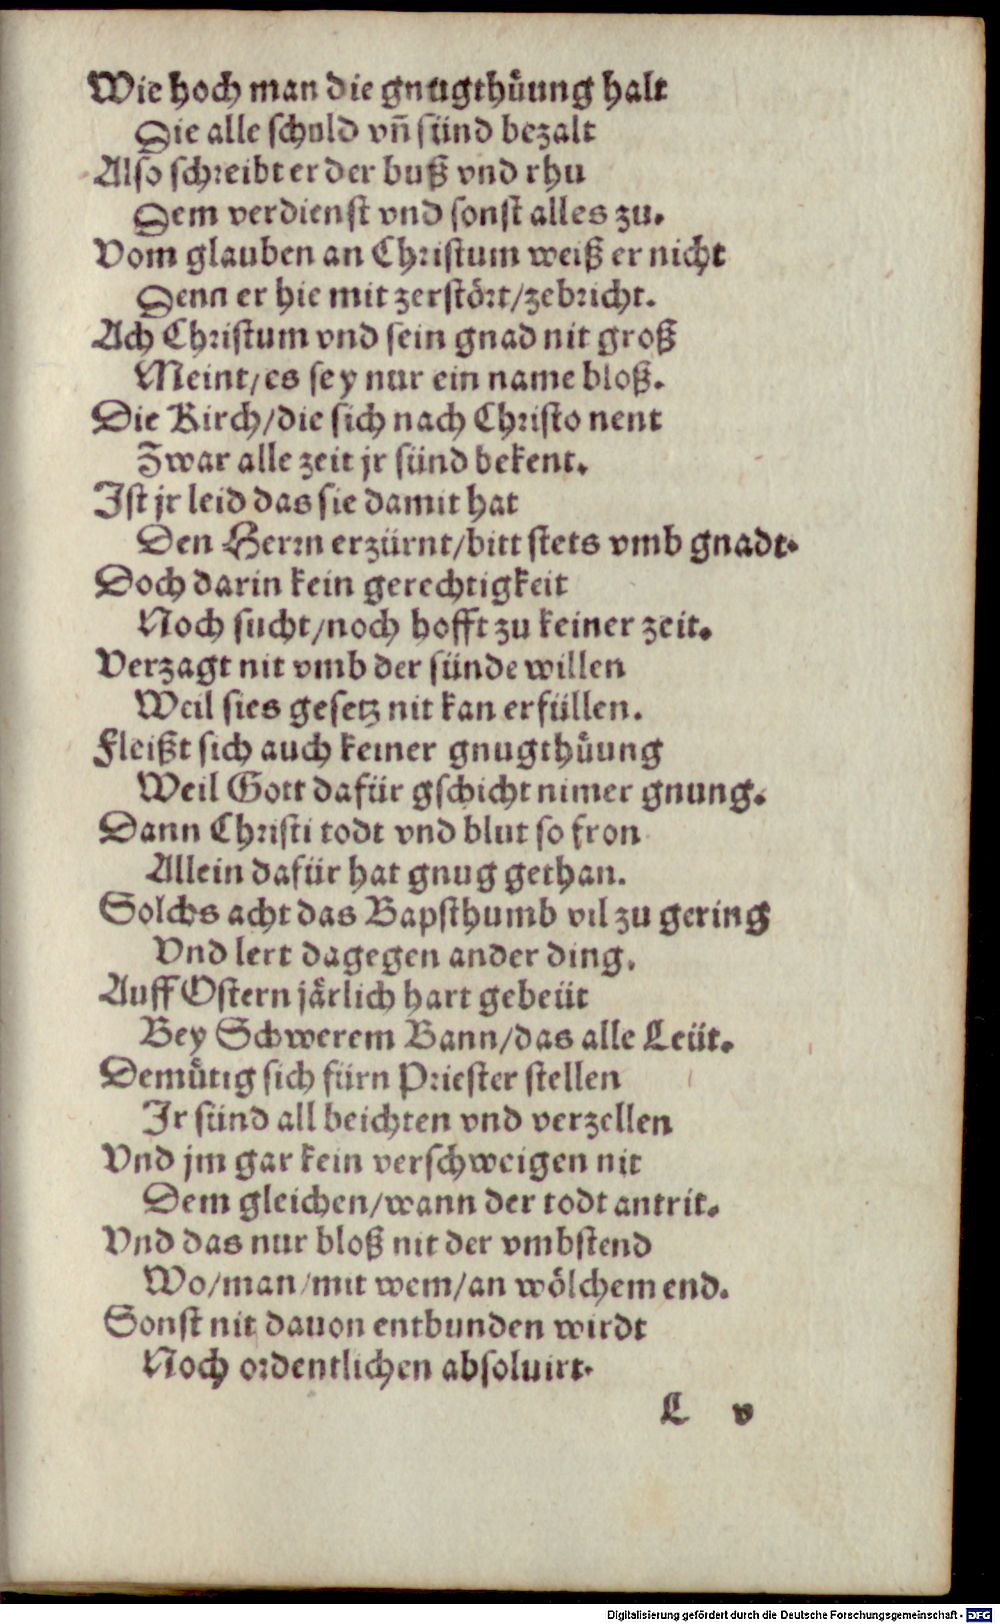 Wie hoch man die gnugthůung halt
Die alle schuld vñ sünd bezalt
Also schreibt er der buß vnd rhu
Dem verdienst vnd sonst alles zu.
Vom glauben an Christum weiß er nicht
Denn er hie mit zerstört/zebricht.
Ach Christum vnd sein gnad nit groß
Meint/es sey nur ein name bloß.
Die Kirch/die sich nach Christo nent
Zwar alle zeit jr sünd bekent.
Ist jr leid das sie damit hat
Den Herrn erzürnt/bitt stets vmb gnadt.
Doch darin kein gerechtigkeit
Noch sucht/noch hofft zu keiner zeit.
Verzagt nit vmb der sünde willen
Weil sies gesetz nit kan erfüllen.
Fleißt sich auch keiner gnugthůung
Weil Gott dafür gschicht nimer gnung.
Dann Christi todt vnd blut so fron
Allein dafür hat gnug gethan.
Solchs acht das Bapsthumb vil zu gering
Vnd lert dagegen ander ding.
Auff Ostern järlich hart gebeüt
Bey Schwerem Bann/das alle Leüt.
Demůtig sich fürn Priester stellen
Ir sünd all beichten vnd verzellen
Vnd jm gar kein verschweigen nit
Dem gleichen/wann der todt antrit.
Vnd das nur bloß nit der vmbstend
Wo/man/mit wem/an wölchem end.
Sonst nit dauon entbunden wirdt
Noch ordentlichen absoluirt.
L v
Digitalisierung gefördert durch die Deutsche Forschungsgemeinschaft - DFG